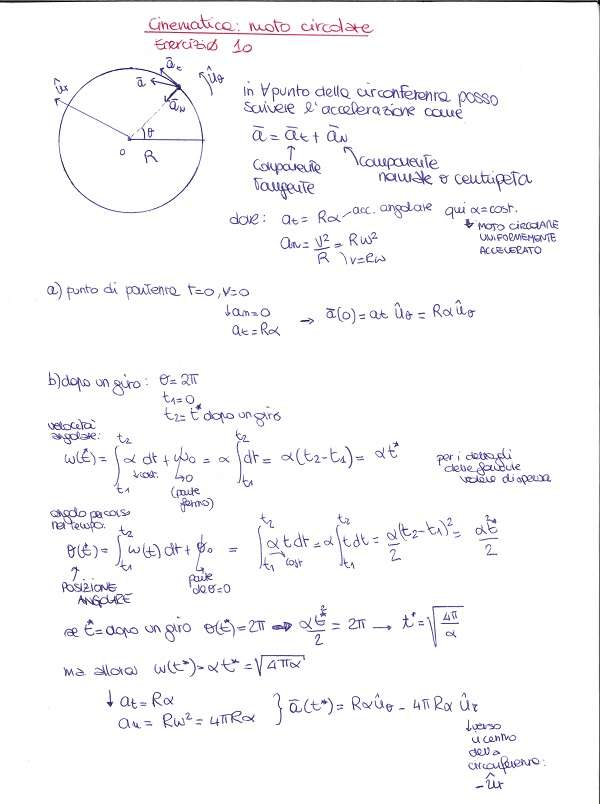 Cinematica: moto circolare
Esercizio 10
ûr
ā
āt
ûθ
āN
θ
O
R
in ∀ punto della circonferenza posso
scrivere l'accelerazione come
ā = āt + āN
componente
tangente
componente
normale o centripeta
dove: at = Rα acc. angolare qui α = cost.
MOTO CIRCOLARE
UNIFORMEMENTE
ACCELERATO
an = v²/R = Rω²
v = Rω
a) punto di partenza t=0, v=0
↓ an=0
at = Rα → ā(0) = at ûθ = Rα ûθ
b) dopo un giro: θ = 2π
t1 = 0
t2 = t* dopo un giro
velocità
angolare:
ω(t*) = ∫t1^t2 α dt + ω0 = α ∫t1^t2 dt = α(t2-t1) = αt*
↓ cost.
→ 0
(parte
fermo)
per i dettagli
delle formule
vedere dispensa
angolo percorso
nel tempo:
θ(t*) = ∫t1^t2 ω(t) dt + θ0 = ∫t1^t2 αt dt = α ∫t1^t2 t dt = α/2 (t2-t1)² = αt*²/2
cost
POSIZIONE
ANGOLARE
parte
da θ=0
se t* = dopo un giro θ(t*) = 2π ⇒ αt*²/2 = 2π → t* = √(4π/α)
ma allora ω(t*) = αt* = √(4πα)
↓ at = Rα
an = Rω² = 4πRα } ā(t*) = Rα ûθ - 4πRα ûr
↓ verso
il centro
della
circonferenza:
-ûr